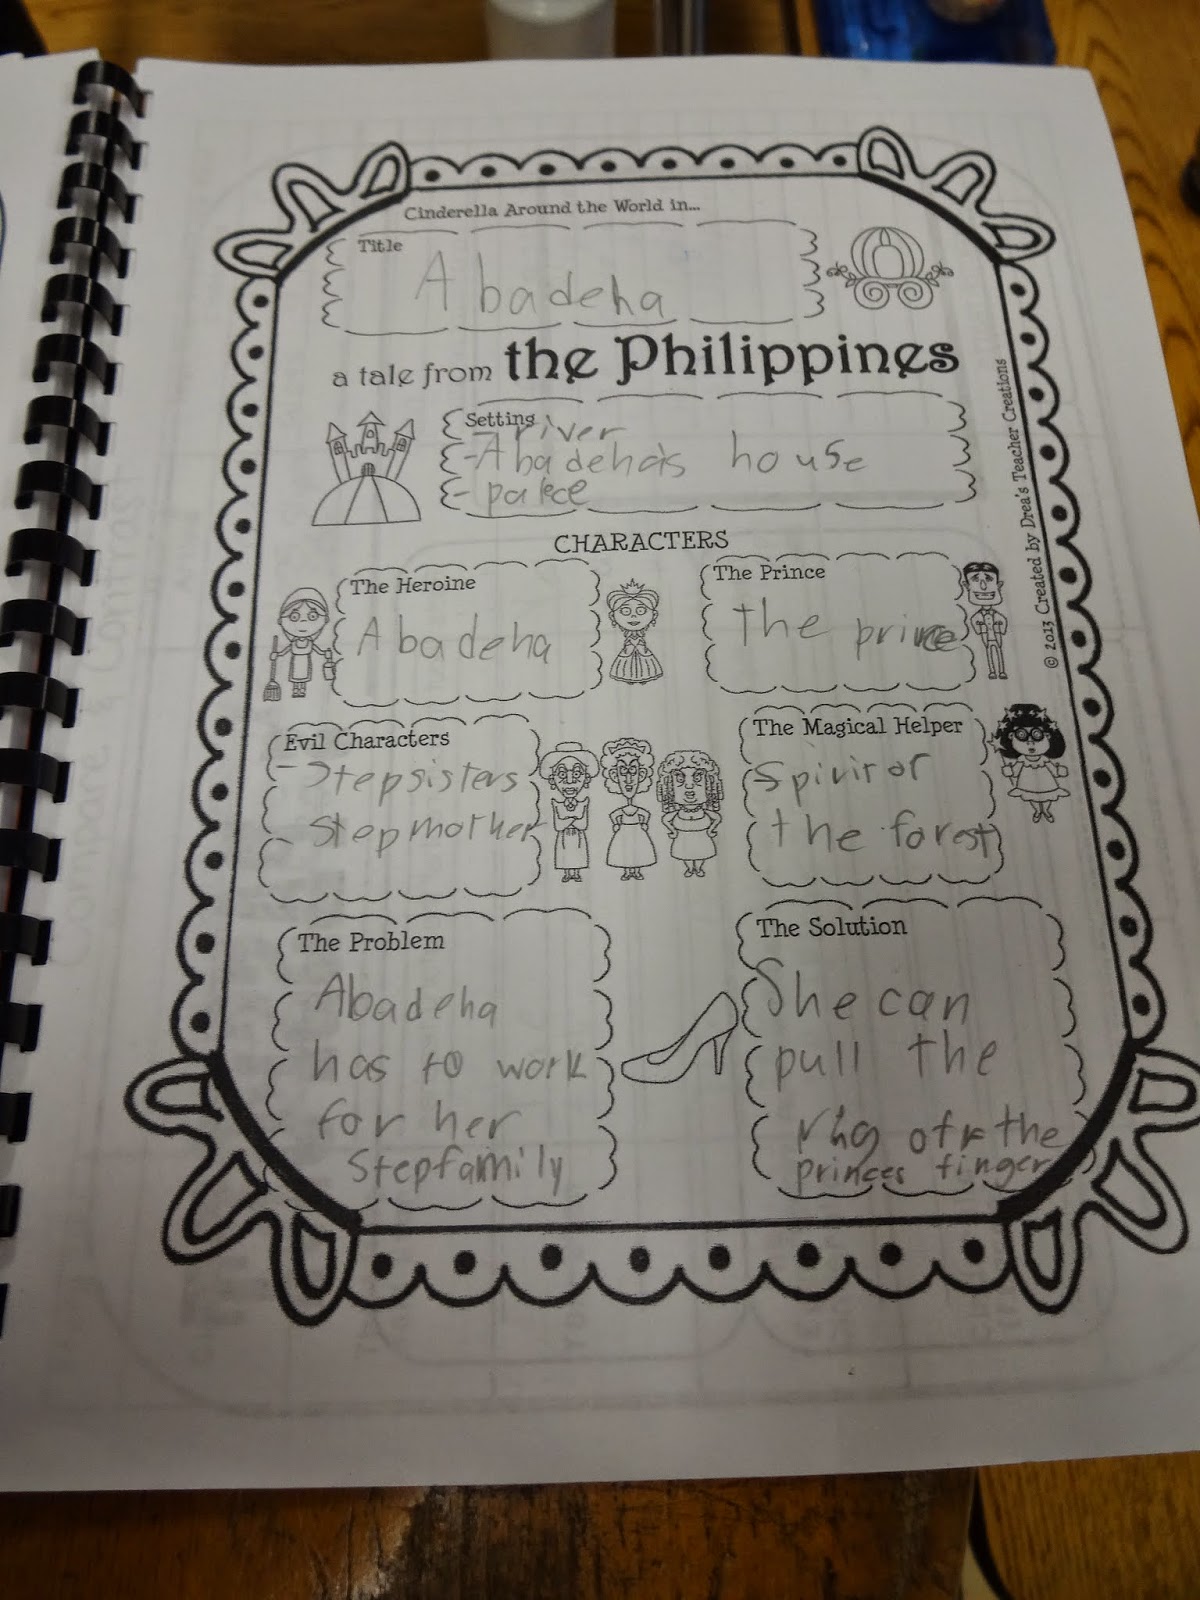 Cinderella Around the World in...
Title
Abadeha
a tale from the Philippines
Setting
- river
- Abadeha's house
- palace
CHARACTERS
The Heroine
Abadeha
The Prince
the prince
Evil Characters
- Stepsisters
- Stepmother
The Magical Helper
Spirit of
the forest
The Problem
Abadeha
has to work
for her
Stepfamily
The Solution
She can
pull the
ring off the
princes finger
© 2013 Created by Drea's Teacher Creations